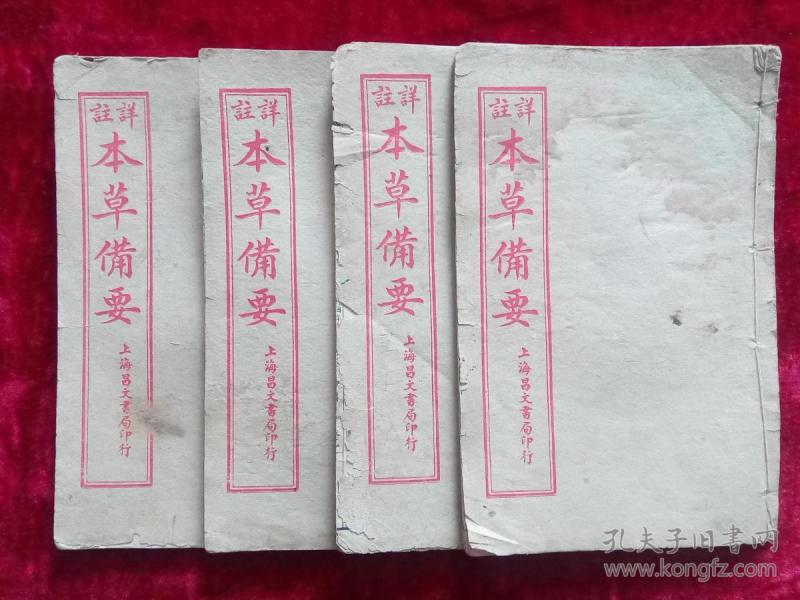 詳註
本草備要
上海昌文書局印行
詳註
本草備要
上海昌文書局印行
詳註
本草備要
上海昌文書局印行
詳註
本草備要
上海昌文書局印行
孔夫子旧书网
www.kongfz.com